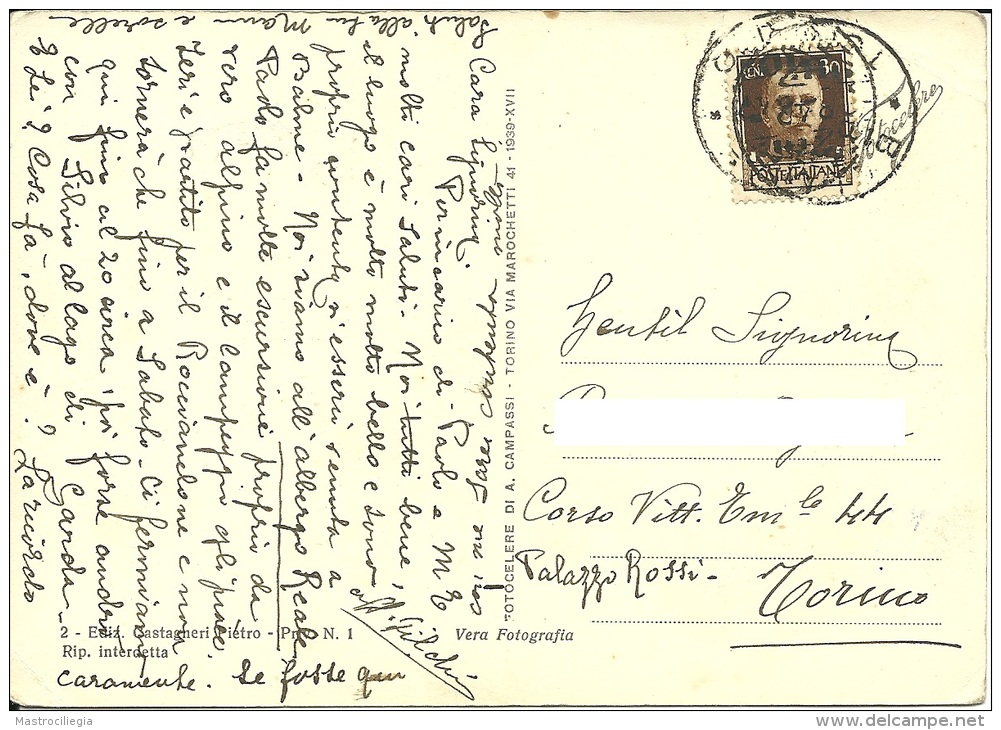 Cara Signorina.
Per incarico di Paolo e M E
molti cari saluti. Noi tutti bene,
il luogo è molto bello e sono
proprio contenta d'esseri venuta a
Balme. Noi siamo all'albergo Reale
Paolo fa molte escursioni proprio da
vero alpino e il campeggio gli piace.
Ieri è partito per il Rocciamelone e non
tornerà che fino a Sabato. Ci fermiamo
qui fino al 20 circa, poi forse andrò
con Silvio al lago di Garda.
E Lei? Cosa fà, dove è? La ricordo
caramente. Se fosse qui
Saluti alla sua Mamma e sorelle
FOTOCELERE DI A. CAMPASSI - TORINO VIA MAROCHETTI 41 - 1939-XVII
2 - Ediz. Castagneri Pietro - N. 1
Rip. interdetta
Vera Fotografia
CEN. 30
POSTE ITALIANE
Fotocelere
Gentil Signorina
Corso Vitt. Em.le 44
Palazzo Rossi -
Torino
Mastrociliegia
www.delcampe.net